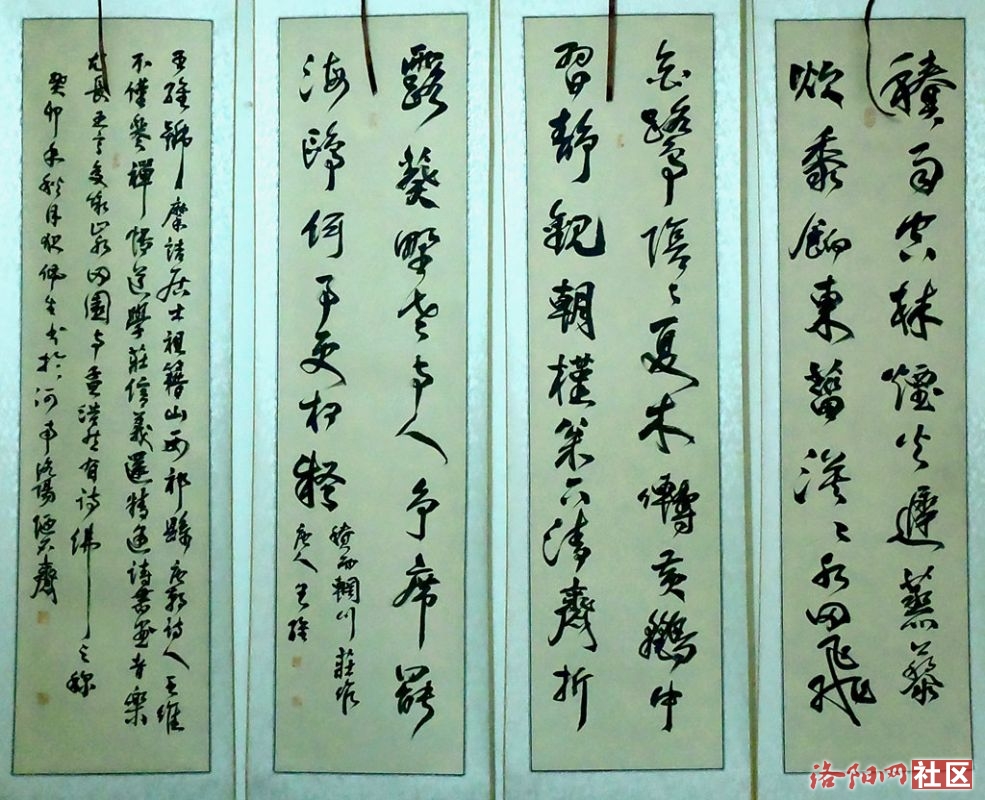 積雨空林煙火遲蒸藜
炊黍餉東菑漠々水田飛
白鷺陰々夏木囀黃鸝中
習靜觀朝槿松下清齋折
露葵野老與人爭席罷
海鷗何事更相疑
積雨輞川莊作
唐人王維
王維號摩詰居士祖籍山西祁縣唐朝詩人王維
不僅參禪悟道學莊信義還精通詩書畫音樂
尤長五言多詠山水田園與孟浩然有詩佛之稱
癸卯年秋月書於河南洛陽齋
洛阳网社区